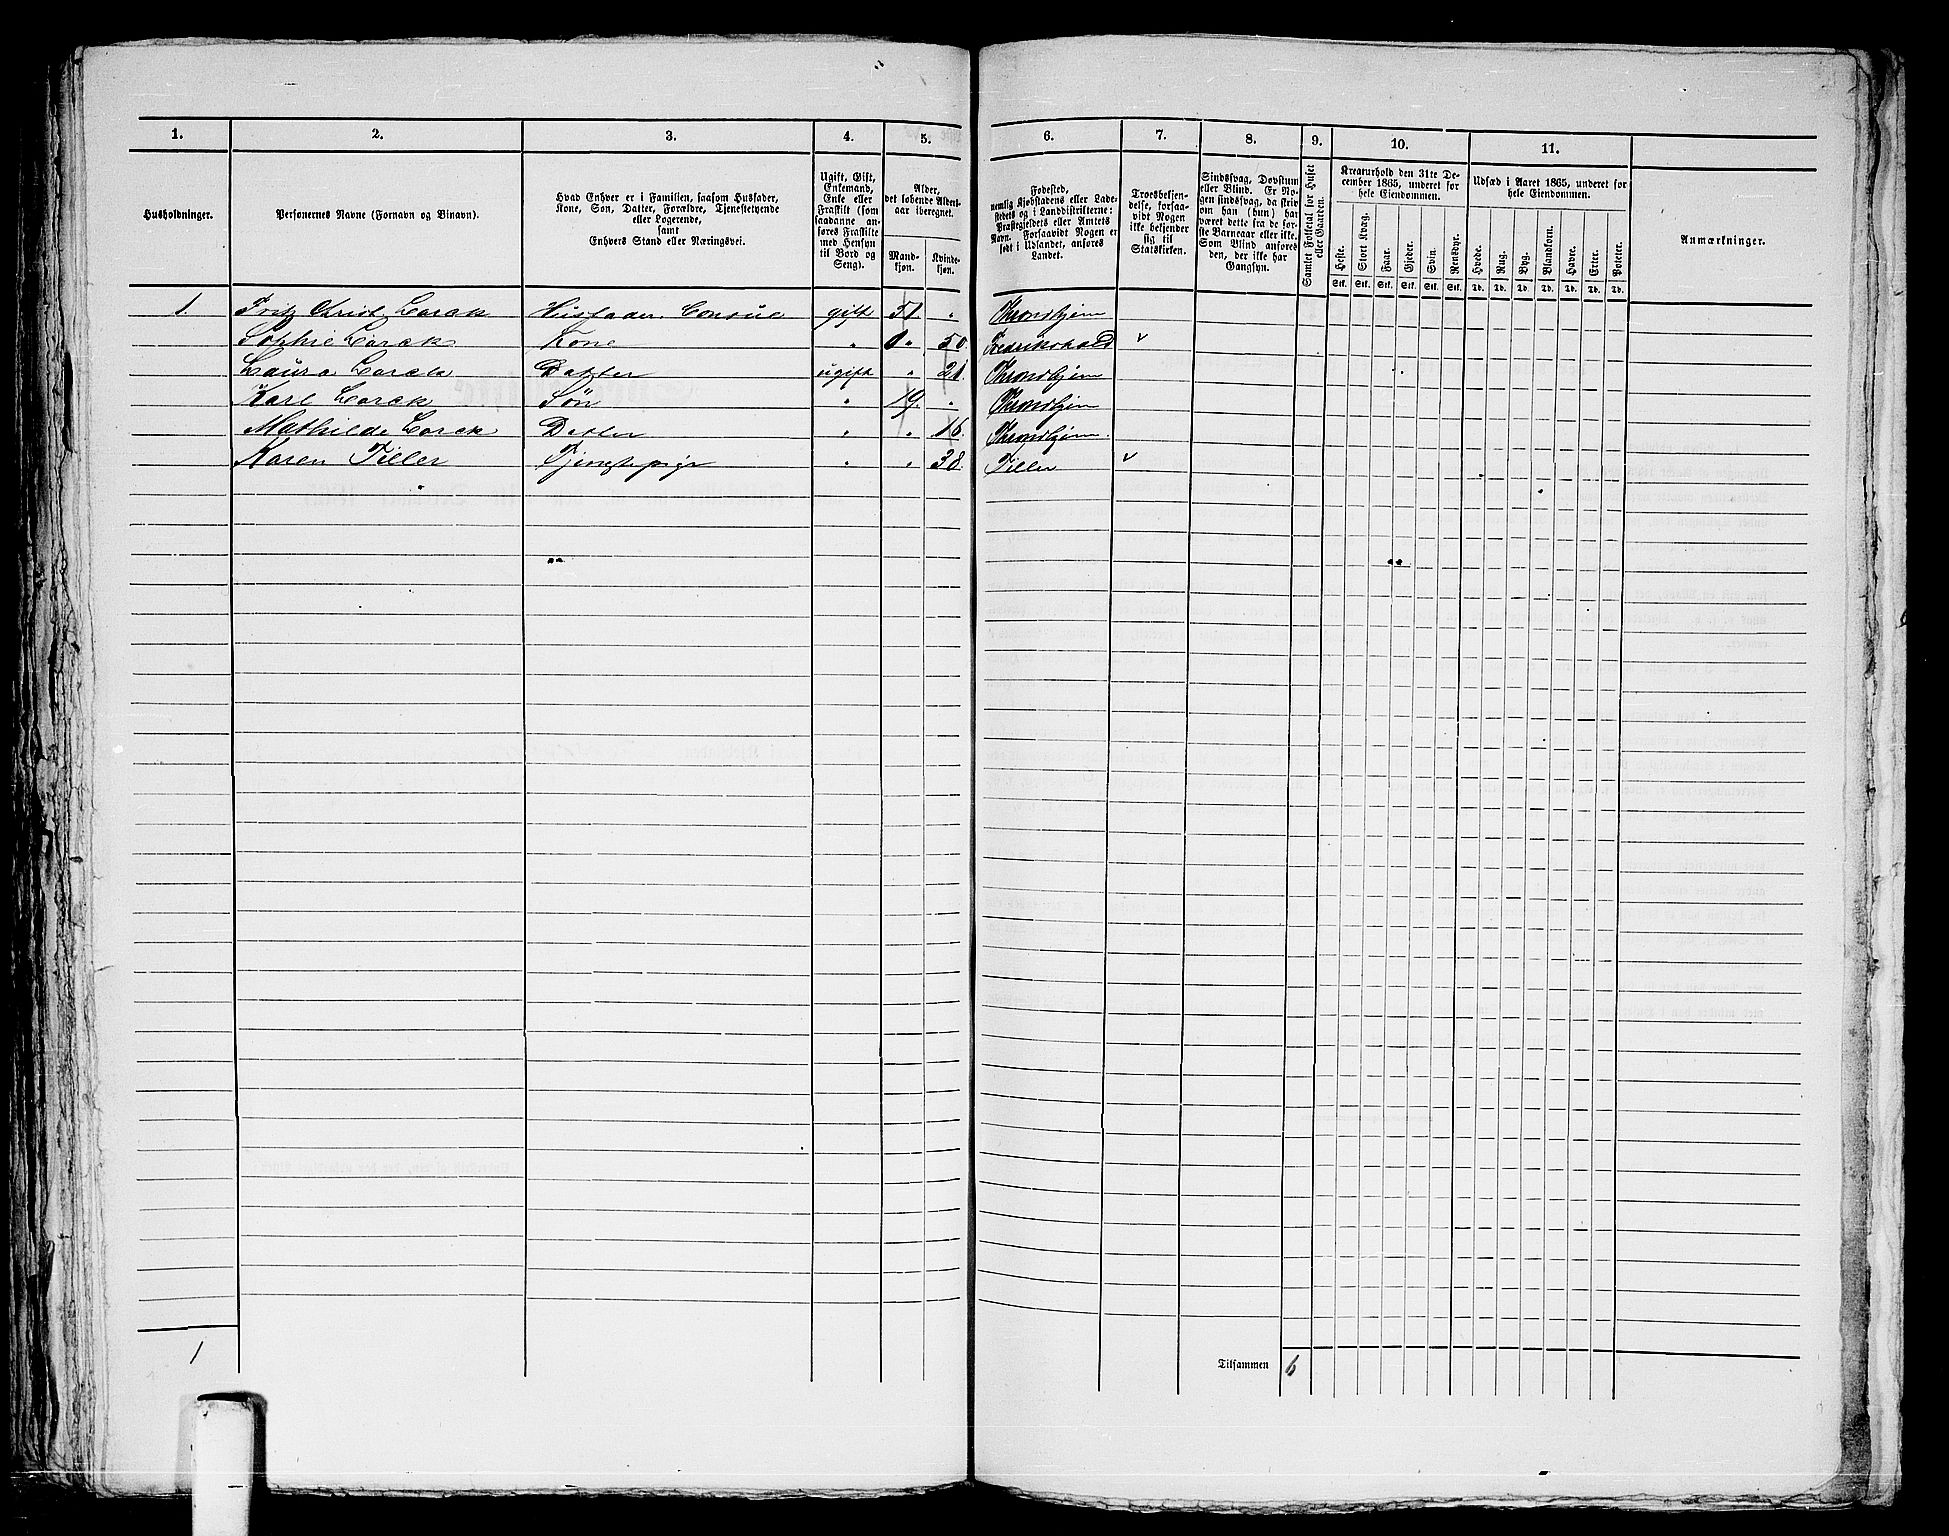 1. 2. 3. 4. 5. 6. 7. 8. 9. 10. 11.
Husholdninger.
Personernes Navne (Fornavn og Binavn).
Hvad Enhver er i Familien, saasom Husfader,
Kone, Søn, Datter, Forældre, Tjenestetyende
eller Logerende,
samt
Enhvers Stand eller Næringsvei.
Ugift, Gift,
Enkemand,
Enke eller
Fraskilt (som
saadanne an-
føres Fraskilte
med Hensyn
til Bord og
Seng).
Alder,
det løbende Alders-
aar iberegnet.
Mand-
kjøn.
Kvinde-
kjøn.
Fødested,
nemlig Kjøbstadens eller Lade-
stedets og i Landdistrikterne:
Præstegjeldets eller Amtets
Navn. Forsaavidt Nogen er
født i Udlandet, anføres
Landet.
Troesbekjen-
delse, forsaa-
vidt Nogen
ikke bekjender
sig til
Statskirken.
Sindssvag, Døvstum
eller Blind. Er No-
gen sindssvag, da skriv
om han (hun) har
været dette fra de før-
ste Barneaar eller ikke.
Som Blind anføres
den, der ikke har
Gangsyn.
Samlet Folketal for Huset
eller Gaarden.
Kreaturhold den 31te De-
cember 1865, underet for
hele Eiendommen.
Heste. Stort Kvæg. Faar. Gjeder. Svin. Rensdyr.
Stk. Stk. Stk. Stk. Stk. Stk.
Udsæd i Aaret 1865, underet for
hele Eiendommen.
Hvede. Rug. Byg. Blandkorn. Havre. Erter. Poteter.
Td. Td. Td. Td. Td. Td. Td.
Anmærkninger.
1. Fritz Christ Lorck Husfader. Consul gift 51 " Throndhjem
Sophie Lorck Kone " " 50. Fredrikshald
Laura Lorck Datter ugift " 21. Throndhjem
Karl Lorck Søn " 19. " Throndhjem
Mathilde Lorck Datter " " 16. Throndhjem.
Karen Tiller Tjenstepige " " 38. Tiller
1
Tilsammen 6